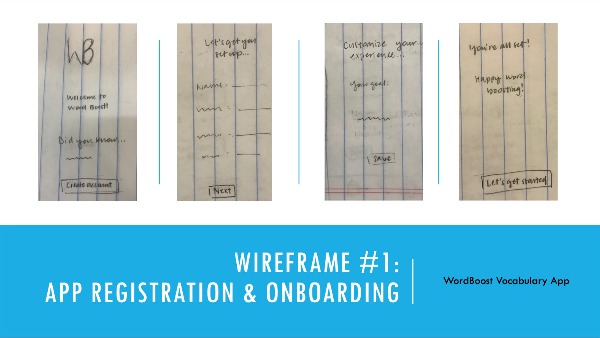 WB
Welcome to
Word Boost!
Did you know...
Create account
Let's get you
set up...
Name:
Next
Customize your
experience...
Your goal:
Save
You're all set!
Happy word
boosting!
Let's get started
WIREFRAME #1:
APP REGISTRATION & ONBOARDING
WordBoost Vocabulary App